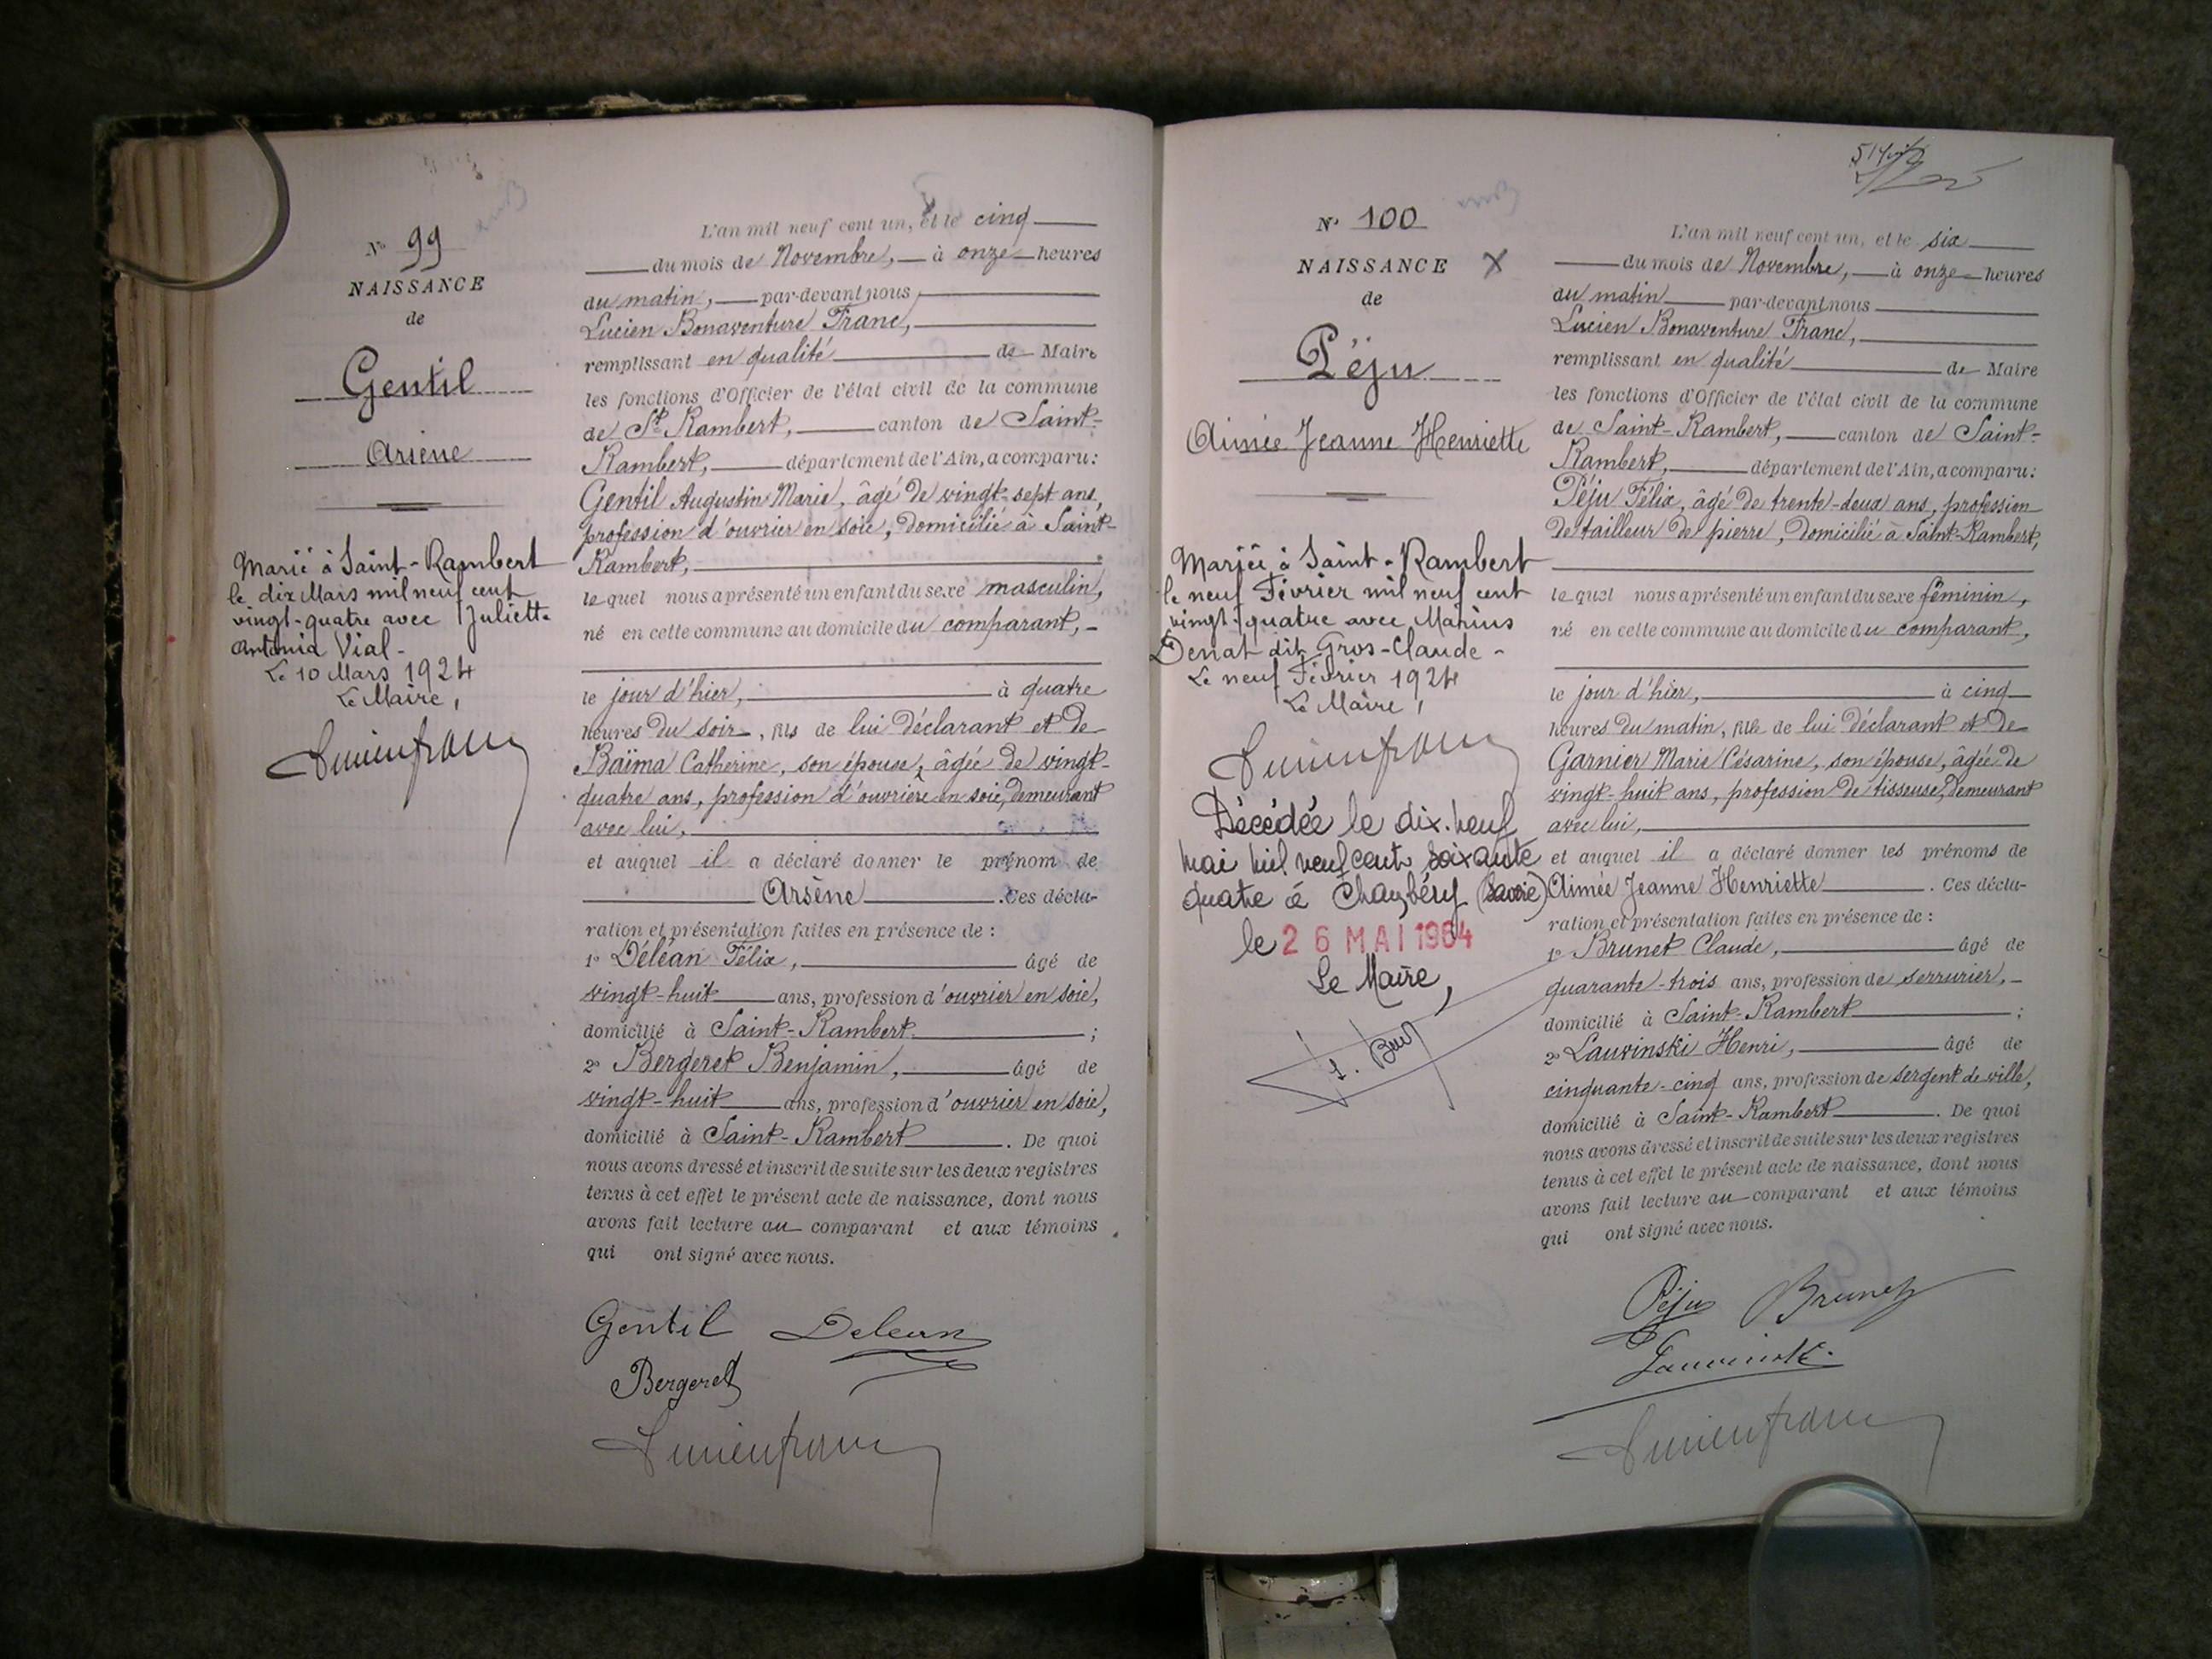 N° 99
NAISSANCE
de
Gentil
Arsène
Marié à Saint-Rambert
le dix Mars mil neuf cent
vingt-quatre avec Juliette
Antonia Vial-
Le 10 Mars 1924
Le Maire,
Lucien franc
L'an mil neuf cent un, et le cinq
du mois de Novembre, à onze heures
du matin, par-devant nous
Lucien Bonaventure Franc,
remplissant en qualité de Maire
les fonctions d'Officier de l'état civil de la commune
de St Rambert, canton de Saint-
Rambert, département de l'Ain, a comparu:
Gentil Augustin Marie, âgé de vingt-sept ans,
profession d'ouvrier en soie, domicilié à Saint-
Rambert,
lequel nous a présenté un enfant du sexe masculin,
né en cette commune au domicile du comparant,
le jour d'hier, à quatre
heures du soir, fils de lui déclarant et de
Baïma Catherine, son épouse, âgée de vingt-
quatre ans, profession d'ouvrière en soie, demeurant
avec lui,
et auquel il a déclaré donner le prénom de
Arsène. Ces décla-
ration et présentation faites en présence de :
1° Déléan Félix, âgé de
vingt-huit ans, profession d'ouvrier en soie,
domicilié à Saint-Rambert ;
2° Bergeret Benjamin, âgé de
vingt-huit ans, profession d'ouvrier en soie,
domicilié à Saint-Rambert. De quoi
nous avons dressé et inscrit de suite sur les deux registres
tenus à cet effet le présent acte de naissance, dont nous
avons fait lecture au comparant et aux témoins
qui ont signé avec nous.
Gentil Delean
Bergeret
Lucien franc
N° 100
NAISSANCE X
de
Péju
Aimée Jeanne Henriette
Mariée à Saint-Rambert
le neuf Février mil neuf cent
vingt-quatre avec Marius
Denat dit Gros-Claude-
Le neuf Février 1924
Le Maire,
Lucien franc
Décédée le dix-neuf
mai mil neuf cent soixante
quatre à Chambéry (Savoie)
le 26 MAI 1964
Le Maire,
L'an mil neuf cent un, et le six
du mois de Novembre, à onze heures
du matin par-devant nous
Lucien Bonaventure Franc,
remplissant en qualité de Maire
les fonctions d'Officier de l'état civil de la commune
de Saint-Rambert, canton de Saint-
Rambert, département de l'Ain, a comparu:
Péju Félix, âgé de trente-deux ans, profession
de tailleur de pierre, domicilié à Saint-Rambert,
lequel nous a présenté un enfant du sexe féminin,
né en cette commune au domicile du comparant,
le jour d'hier, à cinq
heures du matin, fille de lui déclarant et de
Garnier Marie Césarine, son épouse, âgée de
vingt-huit ans, profession de tisseuse, demeurant
avec lui,
et auquel il a déclaré donner les prénoms de
Aimée Jeanne Henriette. Ces décla-
ration et présentation faites en présence de :
1° Brunet Claude, âgé de
quarante-trois ans, profession de serrurier,
domicilié à Saint-Rambert ;
2° Lauvinski Henri, âgé de
cinquante-cinq ans, profession de sergent de ville,
domicilié à Saint-Rambert. De quoi
nous avons dressé et inscrit de suite sur les deux registres
tenus à cet effet le présent acte de naissance, dont nous
avons fait lecture au comparant et aux témoins
qui ont signé avec nous.
Péju Brunet
Lauvinski
Lucien franc